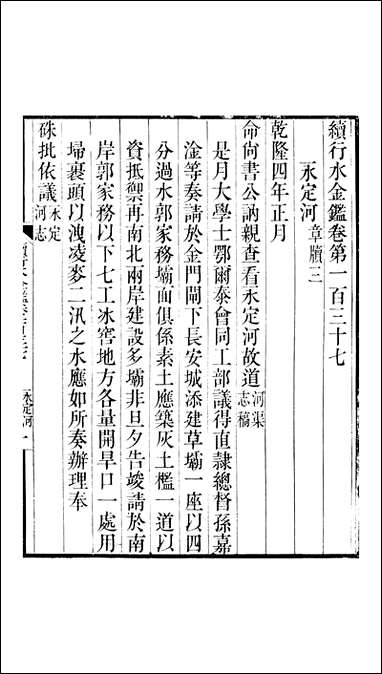 續行水金鑑卷第一百三十七
永定河章牘三
乾隆四年正月
命尚書公訥親查看永定河故道河渠志稿
是月大學士鄂爾泰會同工部議得直隸總督孫嘉
淦等奏請於金門閘下長安城添建草壩一座以四
分過水郭家務壩面俱係素土應築灰土檻一道以
資抵禦再南北兩岸建設多壩非旦夕告竣請於南
岸郭家務以下七工冰窖地方各量開旱口一處用
埽裹頭以洩凌麥二汛之水應如所奏辦理奉
硃批依議永定河志
永定河 一